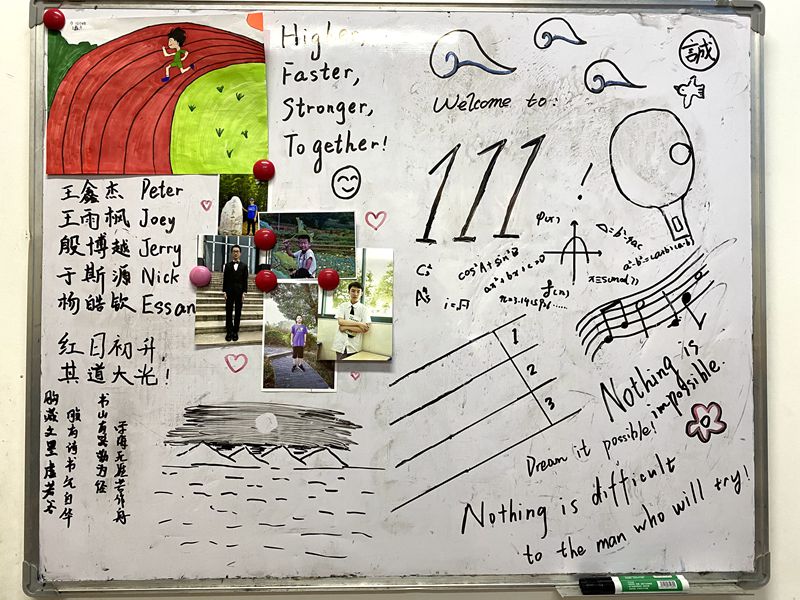 Higher,
Faster,
Stronger,
Together!
王鑫杰 Peter
王雨枫 Joey
殷博越 Jerry
于斯源 Nick
杨皓钦 Essan
红日初升,
其道大光!
书山有路勤为径
学海无涯苦作舟
腹有诗书气自华
胸藏文墨虚若谷
誠
Welcome to:
111!
φ(x)
Δ=b²-4ac
cos²A+sin²θ
a²-b²=(a+b)(a-b)
ax²+bx+c=0
f(x)
i=√-1
1
2
3
Nothing is
impossible.
Dream it possible!
Nothing is difficult
to the man who will try!